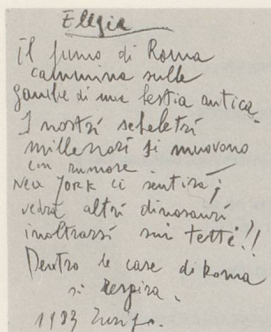 Elegia
Il fiume di Roma
cammina sulle
gambe di una bestia antica.
I nostri scheletri
millenari si muovono
con rumore.
New York ci sentirà;
vedrà altri dinosauri
inoltrarsi sui tetti!!
Dentro le case di Roma
si respira.
1983